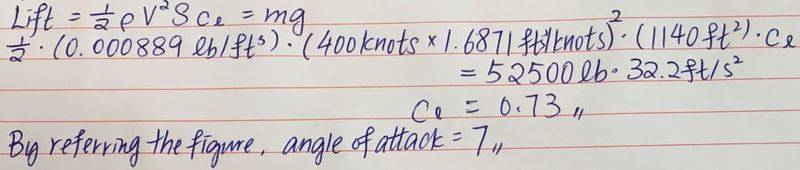 Lift = ½ ρ V² S Cℓ = mg
½ · (0.000889 lb/ft³) · (400 knots × 1.6871 ft/knots)² · (1140 ft²) · Cℓ
= 52500 lb · 32.2 ft/s²
Cℓ = 0.73 〃
By referring the figure, angle of attack = 7 〃